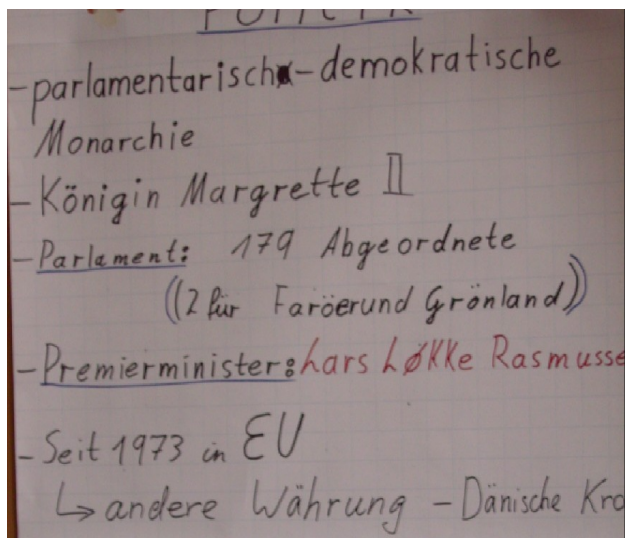 POLITIK
-parlamentarisch-demokratische
Monarchie
-Königin Margrette II
-Parlament: 179 Abgeordnete
((2 für Faröerund Grönland))
-Premierminister: Lars Løkke Rasmusse
-Seit 1973 in EU
↳ andere Währung - Dänische Kro